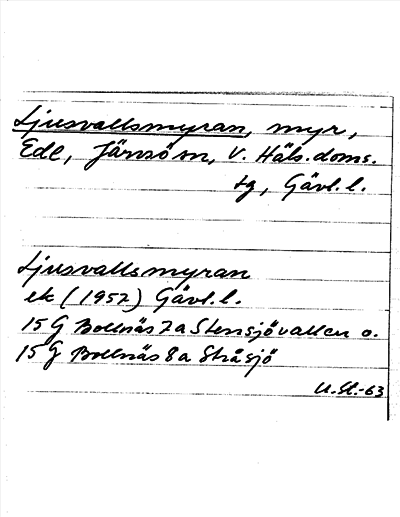 Ljusvallsmyran, myr,
Edl, Järvsö sn, V. Häls. doms.
tg, Gävl. l.
Ljusvallsmyran
ek (1957) Gävl. l.
15 G Bollnäs 7a Stensjövallen o.
15 G Bollnäs 8a Stråsjö
U.St.-63